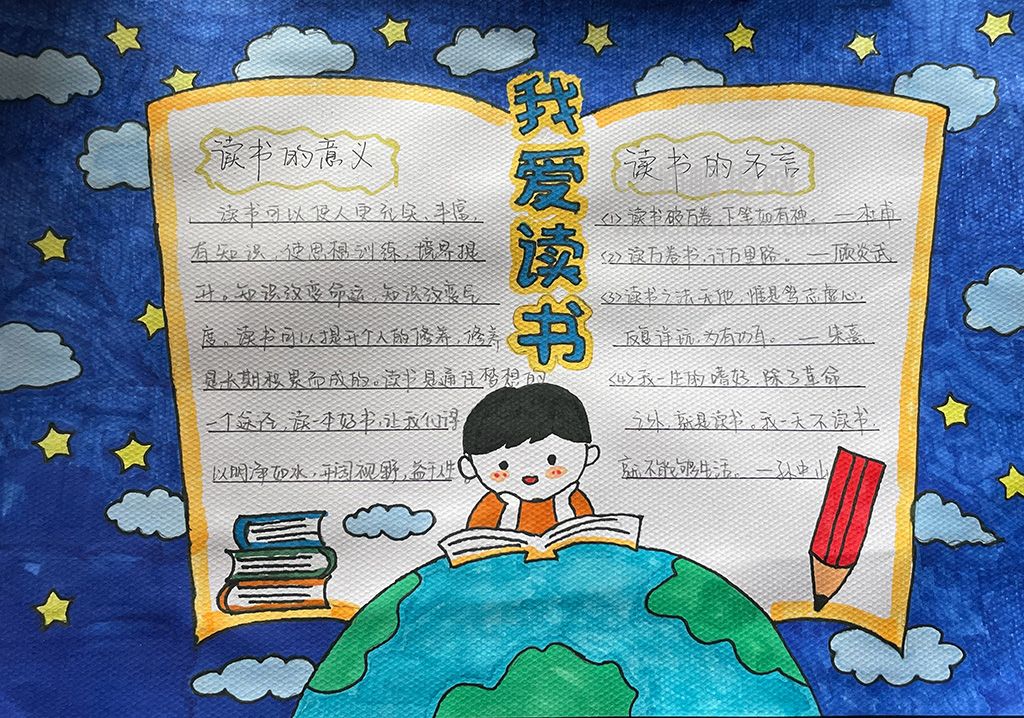 我爱读书
读书的意义
读书可以使人更充实、丰富,
有知识,使思想训练,境界提
升。知识改变命运,知识改变
度。读书可以提升个人的修养,修养
是长期积累而成的。读书是通往梦想的
一个途径,读一本好书,让我们得
以明净如水,开阔视野,益于人生
读书的名言
<1>读书破万卷,下笔如有神。——杜甫
<2>读万卷书,行万里路。——顾炎武
<3>读书之法无他,惟是笃志虚心,
反复详玩,为有功耳。——朱熹
<4>我一生的嗜好,除了革命
之外,就是读书。我一天不读书
就不能够生活。——孙中山